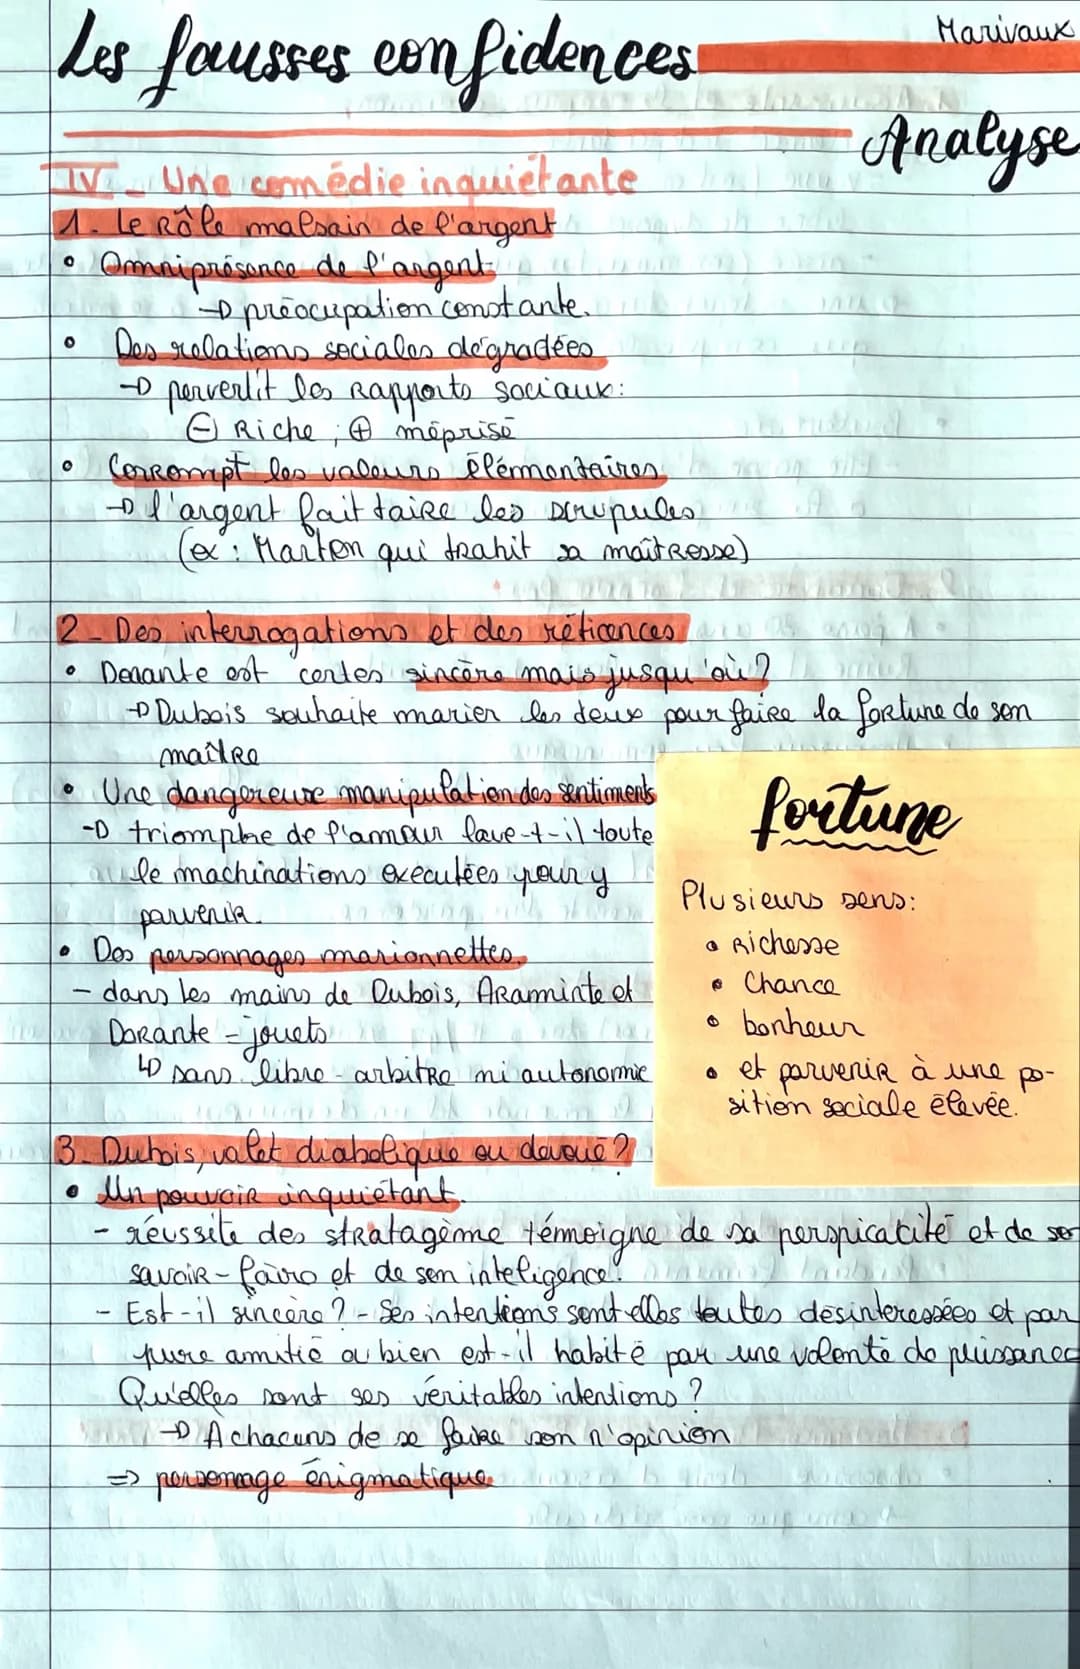 Marivaux
Les fausses confidences
Analyse
IV - Une comédie inquiétante
1. Le Rôle malsain de l'argent
• Omniprésence de l'argent:
→ préocupation constante.
• Des relations sociales dégradées
→ pervertit les Rapports sociaux:
⊖ Riche ; ⊕ méprisé
• Corrompt les valeurs élémentaires
→ l'argent fait taire les scrupules
(ex : Marton qui trahit sa maîtresse)
2 - Des interrogations et des réticences
• Dorante est certes sincère mais jusqu'où ?
→ Dubois souhaite marier les deux pour faire la fortune de son
maître
• Une dangereuse manipulation des sentiments
→ triomphe de l'amour lave-t-il toute
le machinations executées pour y
parvenir.
• Des personnages marionnettes.
- dans les mains de Dubois, Araminte et
Dorante - jouets
↳ sans libre-arbitre ni autonomie
fortune
Plusieurs sens:
• Richesse
• Chance
• bonheur
• et parvenir à une po-
sition sociale élevée.
3. Dubois, valet diabolique ou dévoué ?
• Un pouvoir inquiétant.
- réussite des stratagème témoigne de sa perspicacité et de son
savoir-faire et de son inteligence.
- Est-il sincère ? - Ses intentions sont elles toutes désinteressées et par
pure amitié ou bien est-il habité par une volonté de puissance
Qu'elles sont ses véritables intentions ?
→ A chacuns de se faire son n'opinion
=> personnage énigmatique.